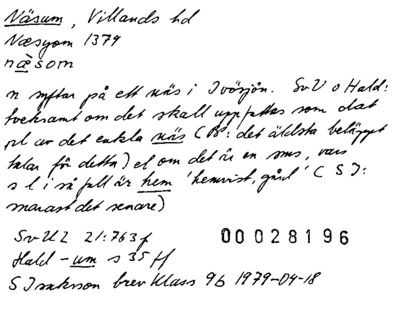 Näsum, Villands hd
Næsyom 1379
nä̀som
n syftar på ett näs i Ivösjön. SvU o Hald:
tveksamt om det skall uppfattas som dat
pl av det enkla näs (B: det äldsta belägget
talar för detta) el om det är en sms, vars
s l i så fall är hem 'hemvist, gård' (SI:
snarast det senare)
SvU 2 21:763 f
00028196
Hald -um s 35 ff
S Isaksson brev Klass 9b 1979-04-18